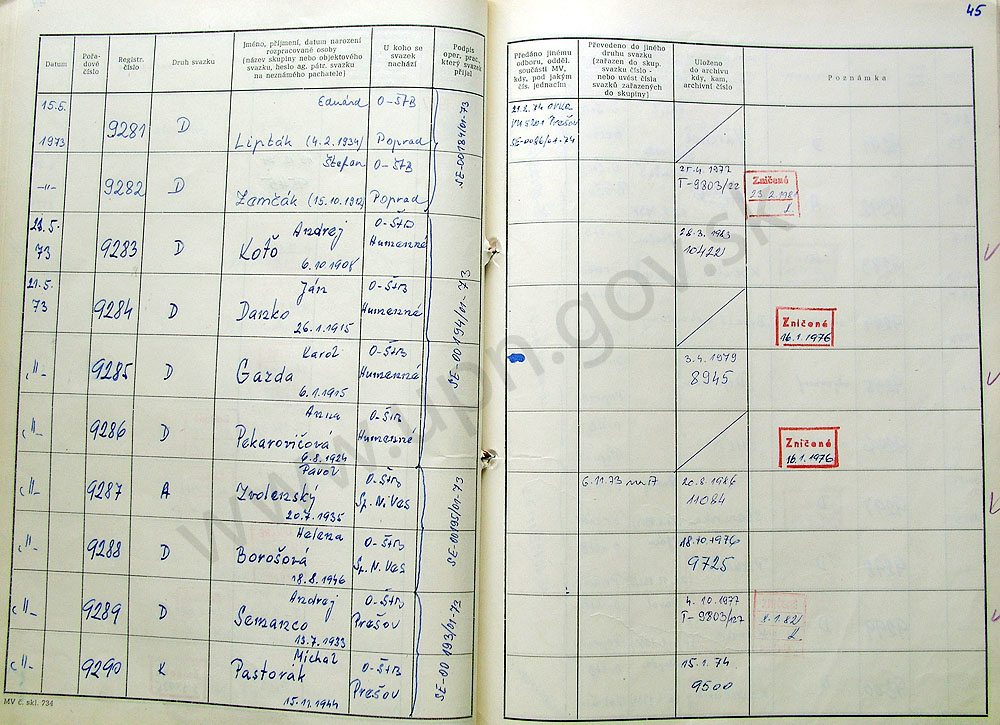 45
Datum
Pořadové číslo
Registr. číslo
Druh svazku
Jméno, příjmení, datum narození
rozpracované osoby
(název skupiny nebo objektového
svazku, heslo ag. pátr. svazku
na neznámého pachatele)
U koho se
svazek
nachází
Podpis
oper. prac.,
který svazek
přijal
Předáno jinému
odboru, odděl.
součásti MV,
kdy, pod jakým
čís. jednacím
Převedeno do jiného
druhu svazku
(zařazen do skup.
svazku číslo -
nebo uvést čísla
svazků zařazených
do skupiny)
Uloženo
do archivu
kdy, kam,
archivní číslo
Poznámka
15.5.
1973
9281
D
Eduárd
Lipták (4.2.1934)
O-ŠTB
Poprad
SE-00184/01-73
21.2.74
Prešov
SE-0086/01-74
-"-
9282
D
Štefan
Zamčák (15.10.1912)
O-ŠTB
Poprad
25.4.1977
T-9803/22
Zničené
23.2.1981
21.5.
73
9283
D
Andrej
Koťo
6.10.1908
O-ŠTB
Humenné
SE-00194/01-73
28.3.1983
10422
21.5.
73
9284
D
Ján
Danko
26.1.1915
O-ŠTB
Humenné
Zničené
16.1.1976
-"-
9285
D
Karol
Gazda
6.1.1915
O-ŠTB
Humenné
3.4.1979
8945
-"-
9286
D
Anna
Pekarovičová
6.8.1924
O-ŠTB
Humenné
Zničené
16.1.1976
-"-
9287
A
Pavol
Zvolenský
20.7.1935
O-ŠTB
Sp. N. Ves
SE-00195/01-73
6.11.73
20.8.1986
11084
-"-
9288
D
Helena
Borošová
18.8.1946
O-ŠTB
Sp. N. Ves
18.10.1976
9725
-"-
9289
D
Andrej
Semanco
13.7.1933
O-ŠTB
Prešov
SE-00193/01-73
4.10.1977
T-9803/22
-"-
9290
K
Michal
Pastorák
15.11.1944
O-ŠTB
Prešov
15.1.74
9500
MV č. skl. 734
www.upn.gov.sk